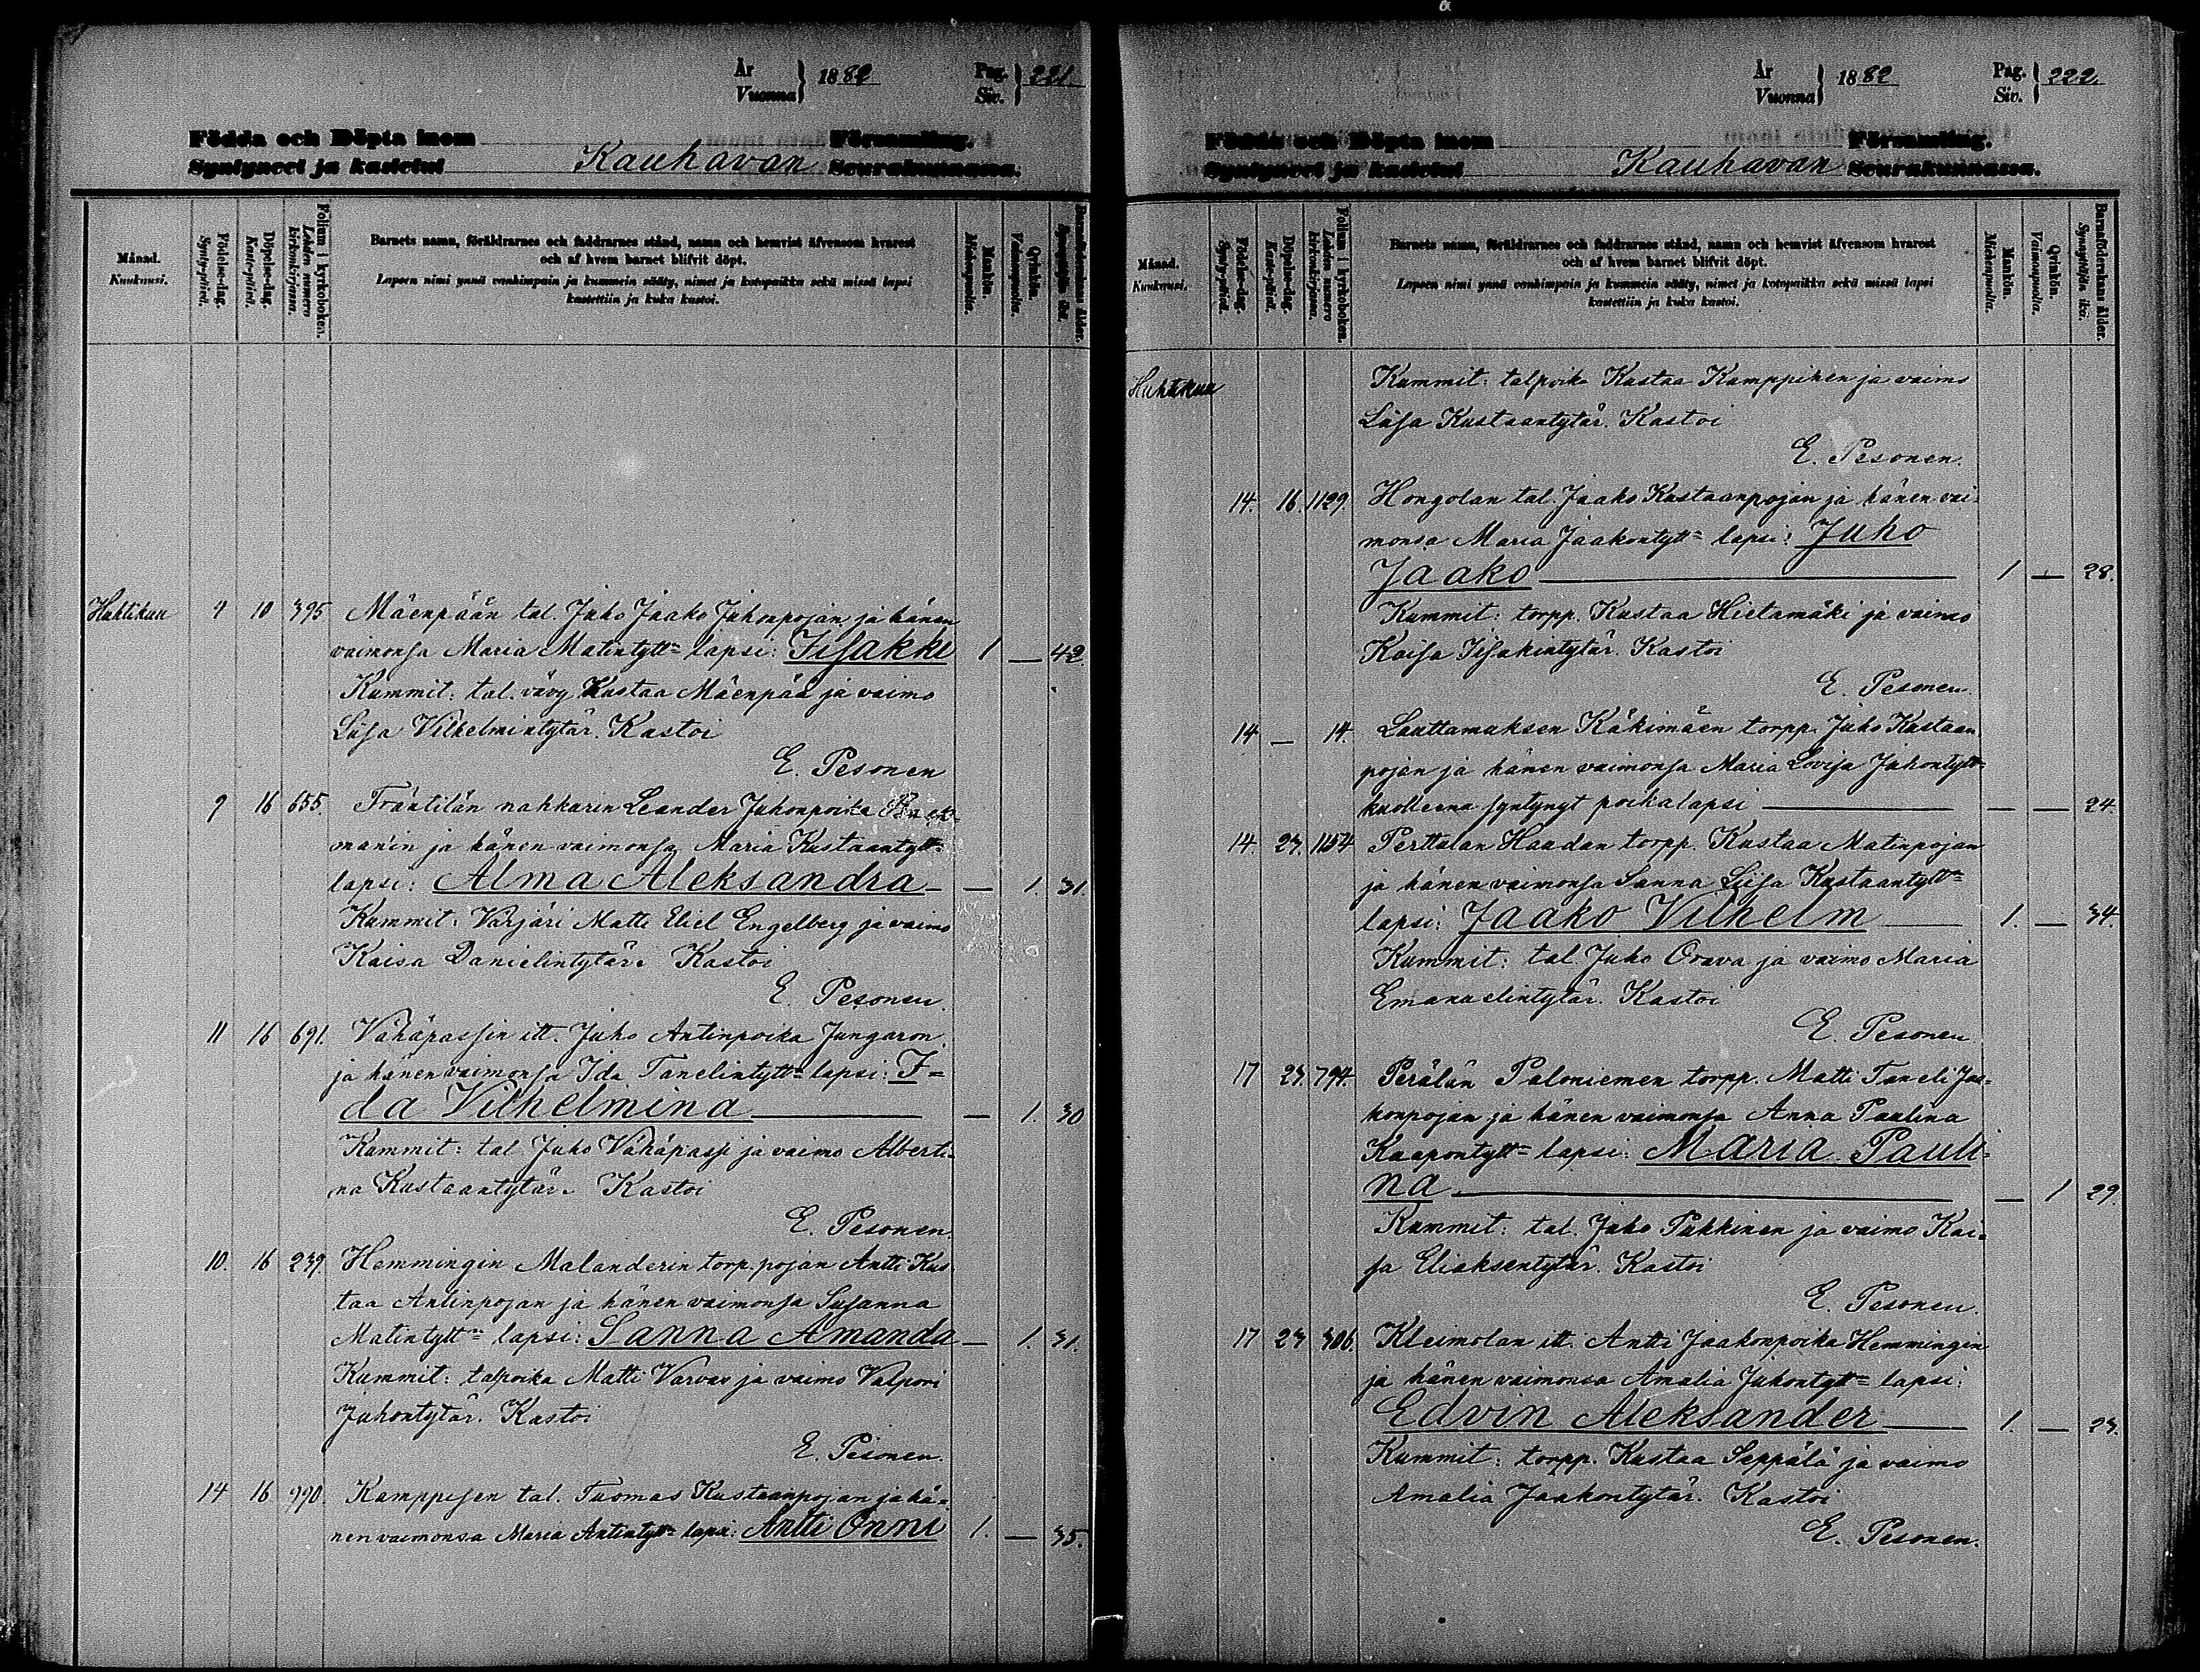 År
Vuonna
1882
Pag.
Siv.
221.
Födda och Döpta inom Församling.
Syntyneet ja kastetut Kauhavan Seurakunnassa.
Månad.
Kuukausi.
Födelse-dag.
Synty-päivä.
Döpelse-dag.
Kaste-päivä.
Folium i kyrkoboken.
Lehden numero kirkonkirjassa.
Barnets namn, föräldrarnes och faddrarnes stånd, namn och hemvist äfvensom hvarest
och af hvem barnet blifvit döpt.
Lapsen nimi ynnä vanhimpain ja kummein sääty, nimet ja kotopaikka sekä missä lapsi
kastettiin ja kuka kastoi.
Mankön.
Miehenpuolta.
Qvinkön.
Vaimonpuolta.
Barnaföderskans ålder.
Synnyttäjän ikä.
Huhtikuu 4 10 395 Mäenpään tal. Juho Jaako Juhonpojan ja hänen
vaimonsa Maria Matintytt= lapsi: Iisakki 1 — 42
Kummit: tal. vävy Kustaa Mäenpää ja vaimo
Liisa Vilhelmintytär. Kastoi
E. Pesonen
9 16 655. Träätilän nahkurin Leander Juhonpoika
man'in ja hänen vaimonsa Maria Kustaantytt=
lapsi: Alma Aleksandra — — 1. 31.
Kummit: Värjäri Matti Eliel Engelberg ja vaimo
Kaisa Danielintytär. Kastoi
E. Pesonen
11 16 691. Vähäpassin itt. Juho Antinpoika Jungaron
ja hänen vaimonsa Ida Tanelintytt= lapsi: I=
da Vilhelmina — — 1. 30
Kummit: tal. Juho Vähäpassi ja vaimo Alberti-
na Kustaantytär. Kastoi
E. Pesonen.
10. 16 239. Hemmingin Malanderin torp. pojan Antti Kus-
taa Antinpojan ja hänen vaimonsa Susanna
Matintytt= lapsi: Sanna Amanda — 1. 31.
Kummit: talpoika Matti Varvas ja vaimo Valpori
Juhontytär. Kastoi
E. Pesonen.
14 16 990. Kamppisen tal. Tuomas Kustaanpojan ja hä-
nen vaimonsa Maria Antintytt= lapsi: Antti Onni 1. — 35.
År
Vuonna
1882
Pag.
Siv.
222.
Födda och Döpta inom Församling.
Syntyneet ja kastetut Kauhavan Seurakunnassa.
Månad.
Kuukausi.
Födelse-dag.
Synty-päivä.
Döpelse-dag.
Kaste-päivä.
Folium i kyrkoboken.
Lehden numero kirkonkirjassa.
Barnets namn, föräldrarnes och faddrarnes stånd, namn och hemvist äfvensom hvarest
och af hvem barnet blifvit döpt.
Lapsen nimi ynnä vanhimpain ja kummein sääty, nimet ja kotopaikka sekä missä lapsi
kastettiin ja kuka kastoi.
Mankön.
Miehenpuolta.
Qvinkön.
Vaimonpuolta.
Barnaföderskans ålder.
Synnyttäjän ikä.
Huhtikuu Kummit: talpoika Kustaa Kamppinen ja vaimo
Liisa Kustaantytär. Kastoi
E. Pesonen.
14. 16. 1129. Hongolan tal. Jaako Kustaanpojan ja hänen vai-
monsa Maria Jaakontytt= lapsi: Juho
Jaako — 1 — 28.
Kummit: torpp. Kustaa Hietamäki ja vaimo
Kaisa Iisakintytär. Kastoi
E. Pesonen.
14 — 14. Lauttamuksen Käkimäen torpp. Juho Kustaan
pojan ja hänen vaimonsa Maria Lovisa Juhontytt=
kuolleena syntynyt poikalapsi — — — 24.
14. 23. 1154 Perttulan Haudan torpp. Kustaa Matinpojan
ja hänen vaimonsa Sanna Liisa Kustaantytt=
lapsi: Jaako Vilhelm — 1. — 34.
Kummit: tal. Juho Orava ja vaimo Maria
Emanuelintytär. Kastoi
E. Pesonen
17 23. 794. Perälän Paloniemen torpp. Matti Taneli Jaa-
konpojan ja hänen vaimonsa Anna Paulina
Kaapontytt= lapsi: Maria Pauli-
na — — 1 29.
Kummit: tal. Juho Pukkinen ja vaimo Kai-
sa Eliaksentytär. Kastoi
E. Pesonen.
17 23 306. Kleimolan itt. Antti Jaakonpoika Hemmingin
ja hänen vaimonsa Amalia Juhontytt= lapsi:
Edvin Aleksander — 1. — 23.
Kummit: torpp. Kustaa Seppälä ja vaimo
Amalia Jaakontytär. Kastoi
E. Pesonen.